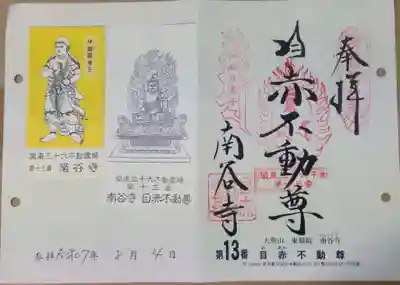 奉拝
目赤不動尊
南谷寺
大聖山 東朝院 南谷寺
第13番 目赤不動尊
関東三十六不動霊場
第十三番 南谷寺
関東三十六不動霊場
第十三番
南谷寺 目赤不動尊
奉拝 令和07年 8月 4日